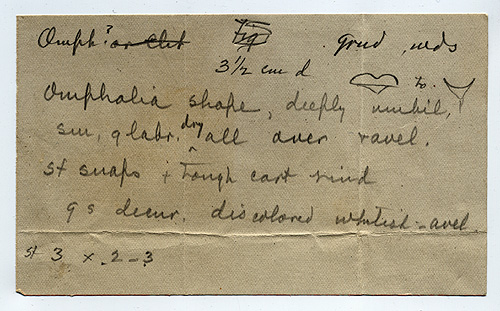 Omph? or Clit Fig. Grnd, wds
3 1/2 cm d to
Omphalia shape, deeply umbil,
sm, glabr. dry all over ravel.
st snaps + tough cart rind
gs decur. discolored whitish-avel
st 3 x .2-3